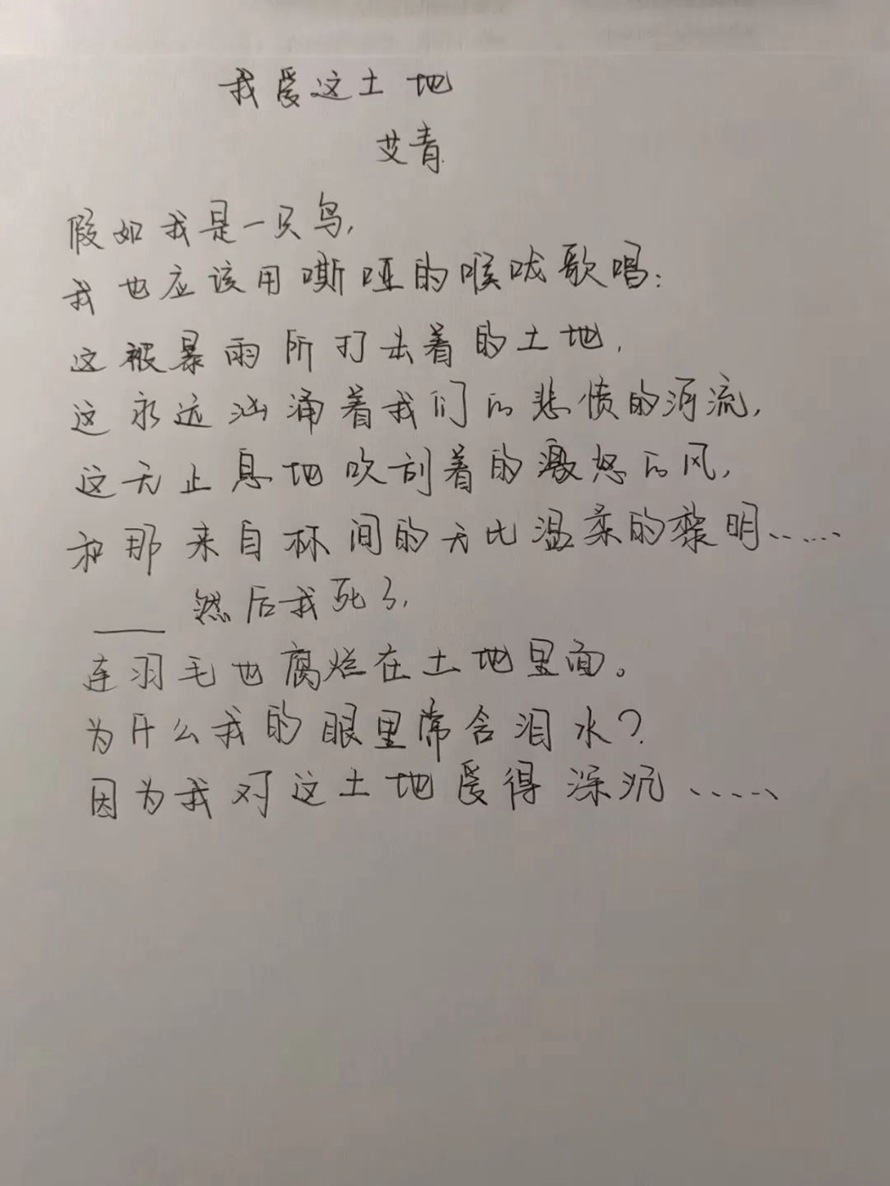 我爱这土地
艾青
假如我是一只鸟,
我也应该用嘶哑的喉咙歌唱:
这被暴雨所打击着的土地,
这永远汹涌着我们的悲愤的河流,
这无止息地吹刮着的激怒的风,
和那来自林间的无比温柔的黎明……
——然后我死了,
连羽毛也腐烂在土地里面。
为什么我的眼里常含泪水?
因为我对这土地爱得深沉……